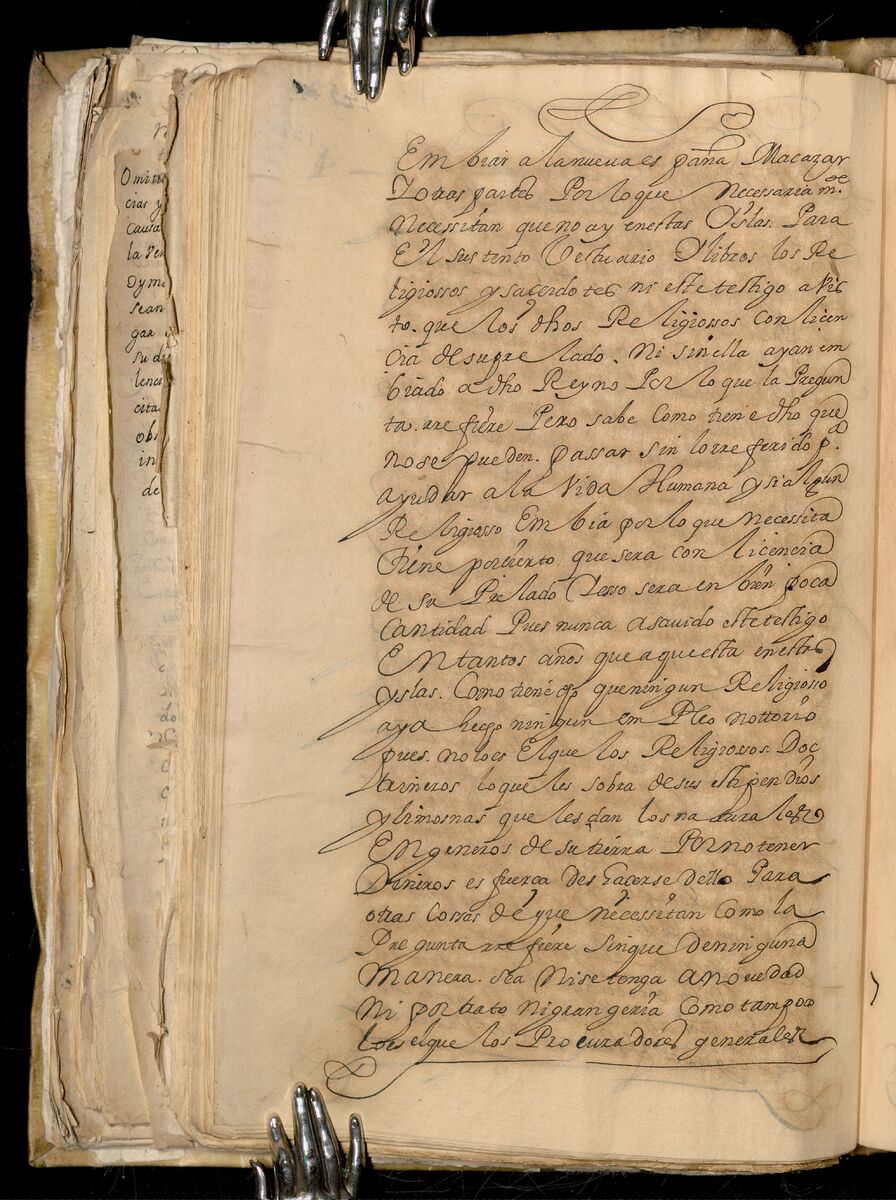 Omiss
cias y
Causa
la Ve
Dy m
sean
gar
su di
lenc
cita
obs
in
de
Embiar a la nueva es paña Macazar
Y otras partes Por lo que Necessaria m.te
Necessitan que no ay en estas Yslas. Para
El sustento Vestuario Y libros los Re
ligiossos y sacerdotes ni este testigo a vis
to. que los dhos Religiossos con licen
cia de su pre lado. Ni sin ella ayan em
biado a dho Reyno Por lo que la Pregun
ta. rre fiere Pero sabe Como tiene dho que
no se pueden. passar sin lo rre ferido p.a
ayudar a la Vida Humana y si algun
Religiosso Em bia por lo que necessita
Tiene por cierto que sera con licencia
de su Prelado Y esso sera en bien poca
Cantidad Pues nunca a savido este testigo
En tantos años que a que esta en estas
yslas. Como tiene dho que ningun Religiosso
aya hecho ningun em Pleo nottorio
pues. no lo es El que los Religiossos. Doc
trineros lo que les sobra de sus estipendios
y limosnas que les dan los na turales
En generos de su tierra Por no tener
Dineros es fuerca des hacerse dello Para
otras Cossas de que necessitan Como la
Pre gunta rre fiere Sin que de ninguna
Manera. sea Ni se tenga a novedad
Ni por trato ni gran geria Como tampoco
lo es el que los Procuradores generales